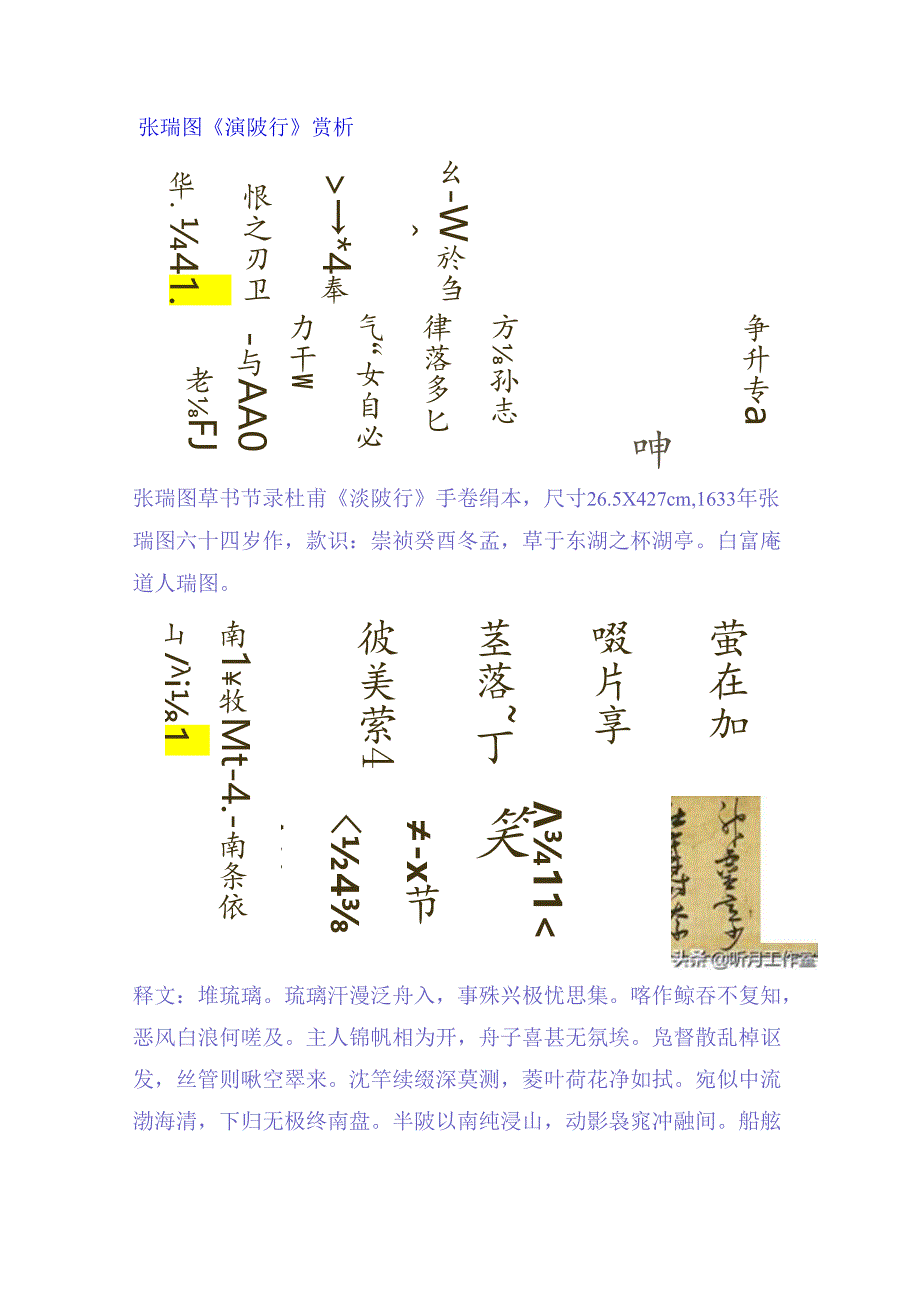 张瑞图《演陂行》赏析
华.¼41.
恨之刃卫
>→*4奉
幺-W於刍
老⅛FJ
-与AA0
力干W
气“女自必
律落多匕
方⅛孙志
呻
争升专a
张瑞图草书节录杜甫《淡陂行》手卷绢本，尺寸26.5X427cm,1633年张
瑞图六十四岁作，款识：崇祯癸酉冬孟，草于东湖之杯湖亭。白富庵
道人瑞图。
南1⁎牧Mt-4.-南条依
彼美萦4
茎落~丁
啜片享
萤在加
<½4⅜
≠-x节
笑
Λ¾11<
头条@听月工作室
释文：堆琉璃。琉璃汗漫泛舟入，事殊兴极忧思集。喀作鲸吞不复知，
恶风白浪何嗟及。主人锦帆相为开，舟子喜甚无氛埃。凫督散乱棹讴
发，丝管则啾空翠来。沈竿续缀深莫测，菱叶荷花净如拭。宛似中流
渤海清，下归无极终南盘。半陂以南纯浸山，动影袅窕冲融间。船舷